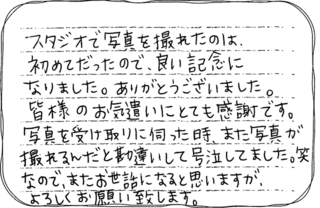 スタジオで写真を撮れたのは、
初めてだったので、良い記念に
なりました。ありがとうございました。
皆様のお気遣いにとても感謝です。
写真を受け取りに伺った時、また写真が
撮れるんだと勘違いして号泣してました。笑
なので、またお世話になると思いますが、
よろしくお願い致します。